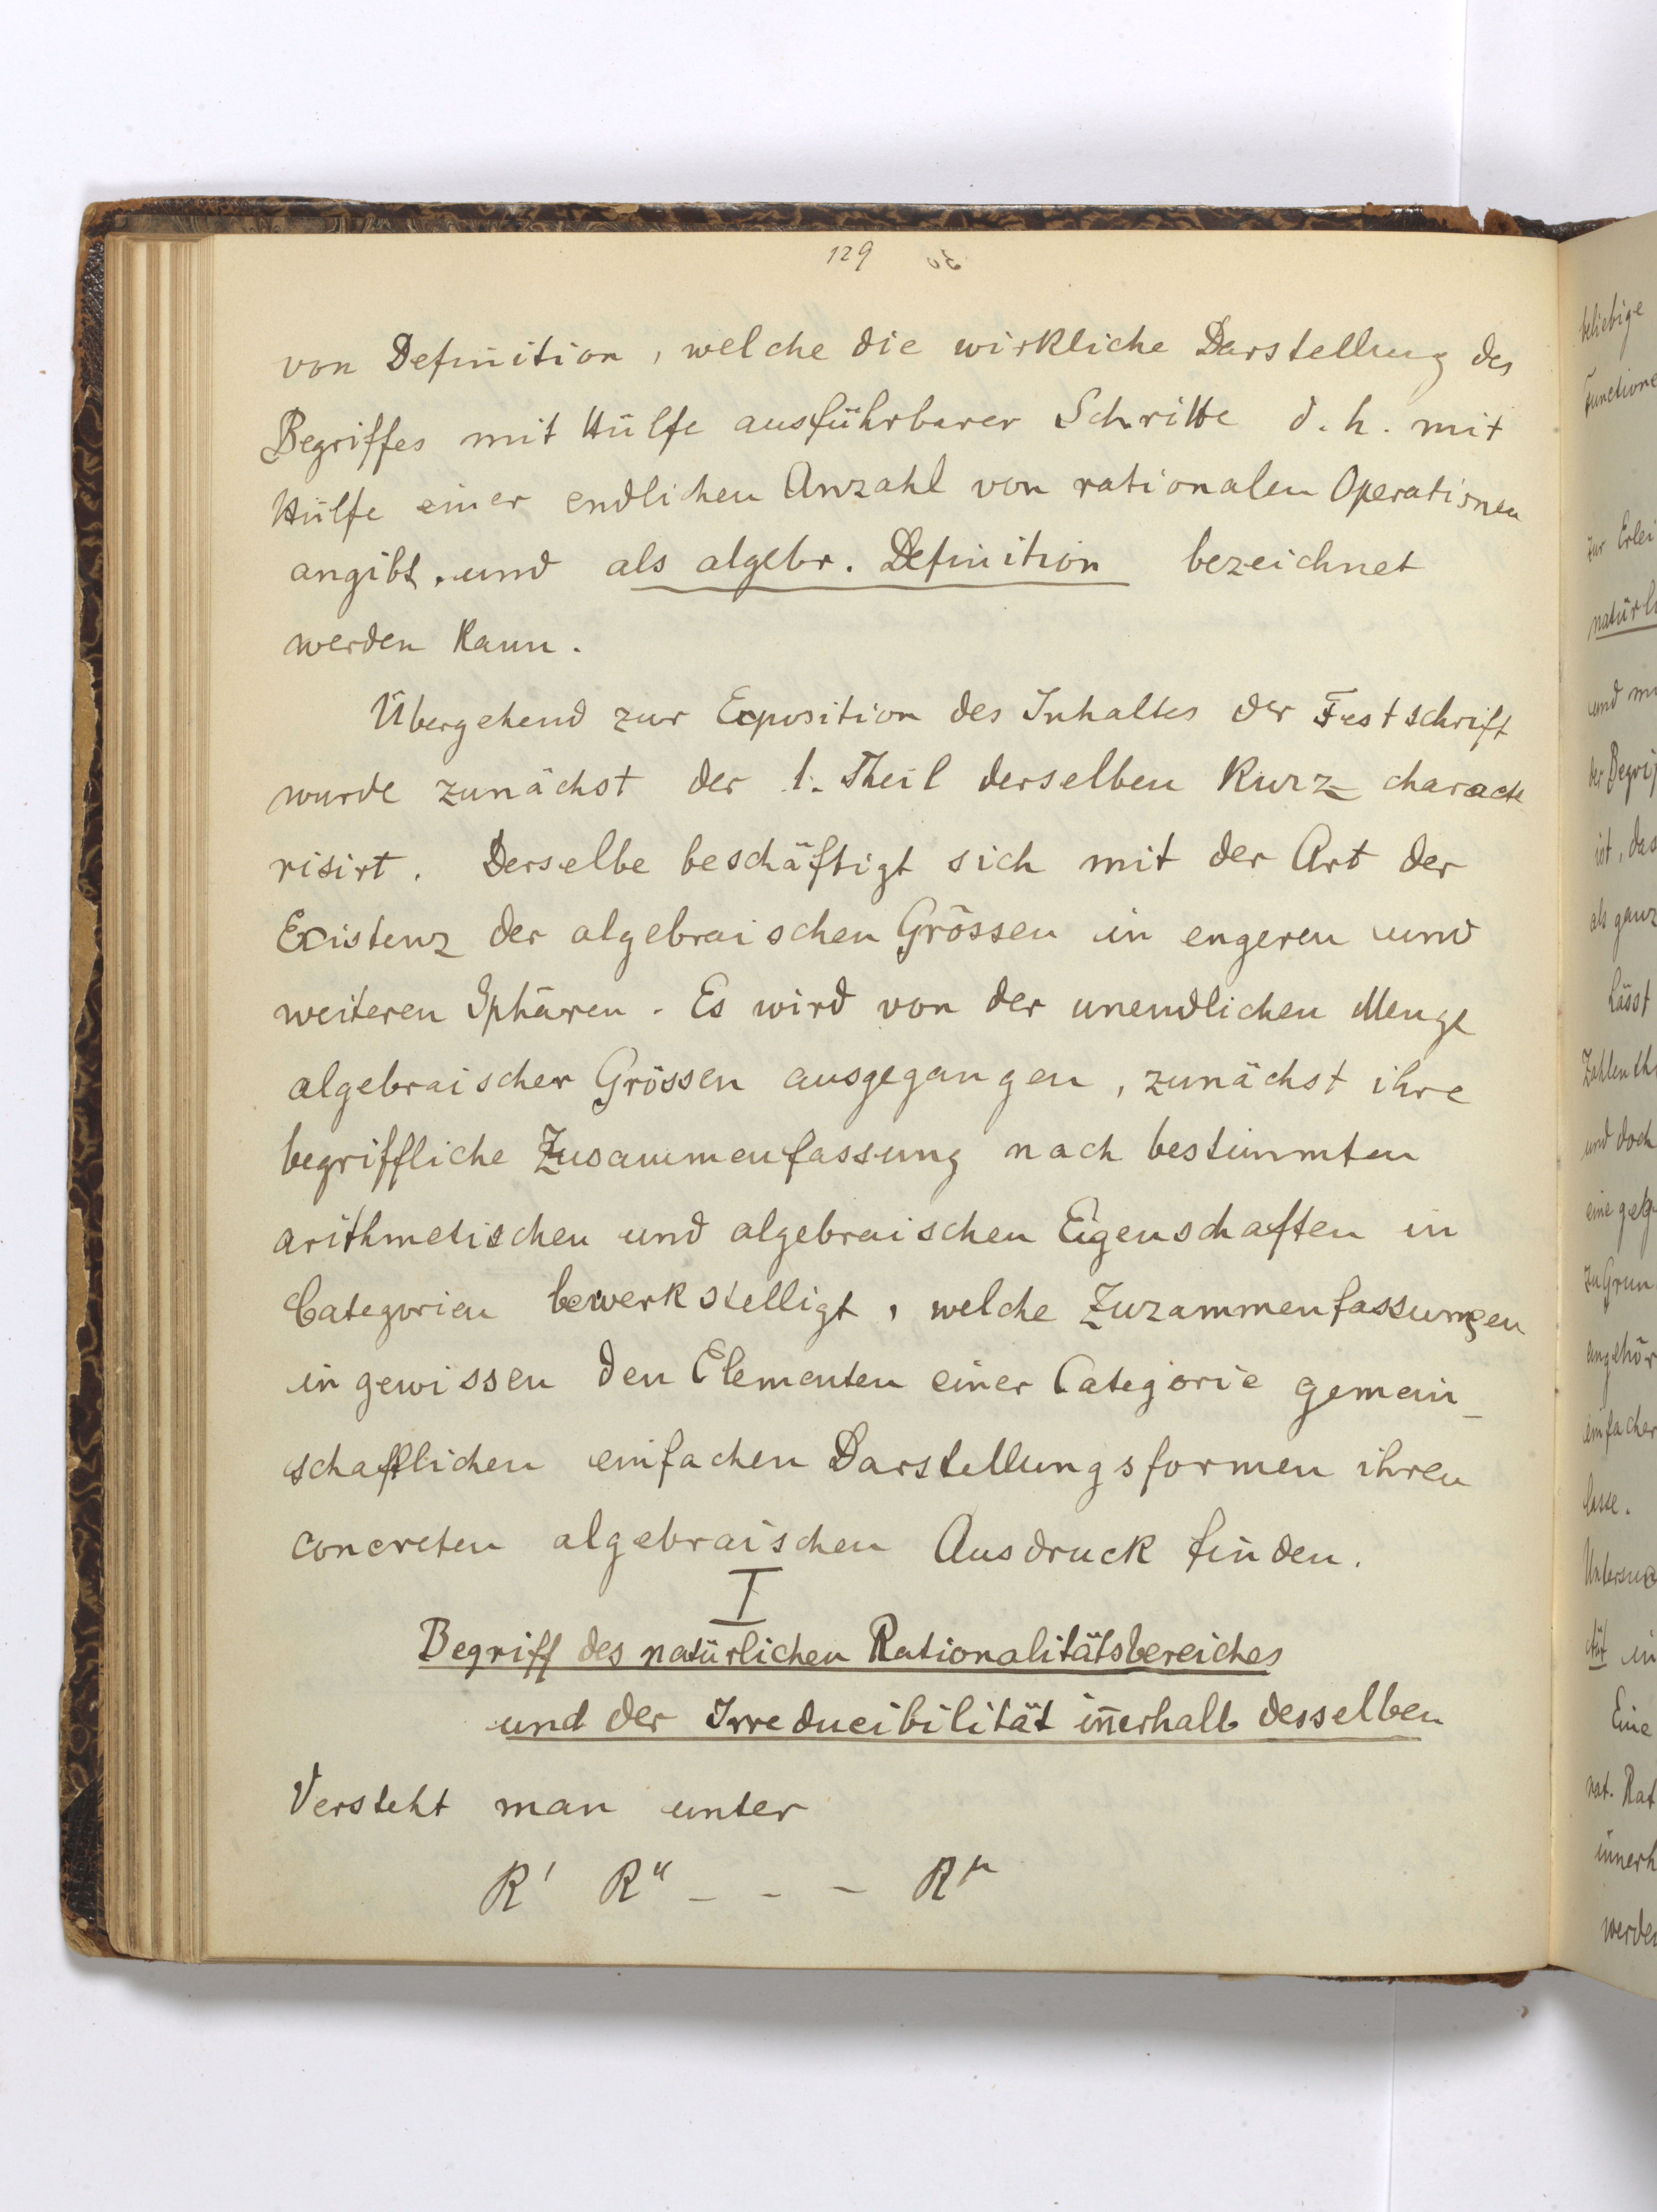 129
von Definition, welche die wirkliche Darstellung des
Begriffes mit Hülfe ausführbarer Schritte d. h. mit
Hülfe einer endlichen Anzahl von rationalen Operationen
angibt, und als algebr. Definition bezeichnet
werden kann.
Übergehend zur Exposition des Inhaltes der Festschrift
wurde zunächst der 1. Theil derselben kurz characte
risirt. Derselbe beschäftigt sich mit der Art der
Existenz der algebraischen Grössen in engeren und
weiteren Sphären. Es wird von der unendlichen Menge
algebraischer Grössen ausgegangen, zunächst ihre
begriffliche Zusammenfassung nach bestimmten
arithmetischen und algebraischen Eigenschaften in
Categorien bewerkstelligt, welche Zuzammenfassungen
in gewissen den Elementen einer Categorie gemein_
schaftlichen einfachen Darstellungsformen ihren
concreten algebraischen Ausdruck finden.
I
Begriff des natürlichen Rationalitätsbereiches
und der Irreducibilität iñerhalb desselben
Versteht man unter
R' R" _ _ _ Rᵘ
beliebige
Functione
zur Erlei
natürli
und
der Begrif
ist, das
als ganz
lässt
Zahlenth
und doch
eine
zu Grun
angehör
einfacher
lasse.
Untersuc
tät in
Eine
nat. Rat
innerh
werde